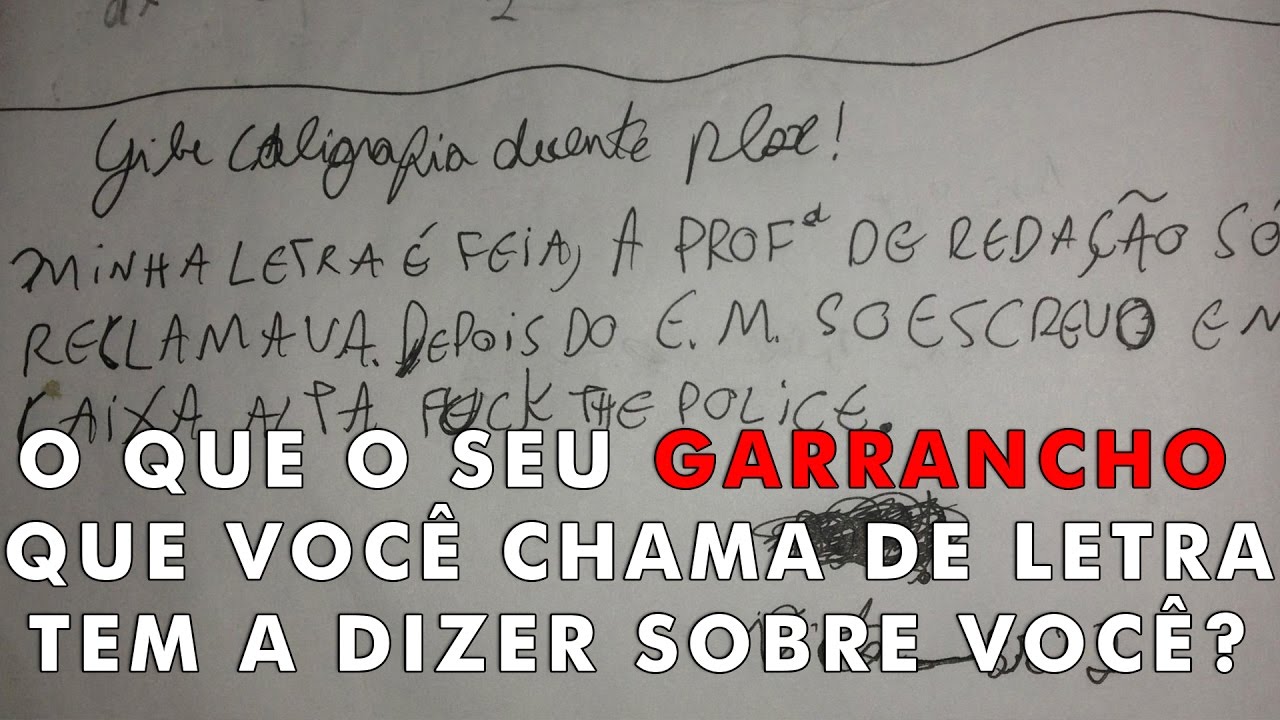 2
Gibe Caligrafia decente ploxe!
MINHA LETRA É FEIA, A PROFª DE REDAÇÃO SÓ
RECLAMAVA. DEPOIS DO E.M. SO ESCREVO EM
CAIXA ALTA FUCK THE POLICE.
O QUE O SEU GARRANCHO
QUE VOCÊ CHAMA DE LETRA
TEM A DIZER SOBRE VOCÊ?